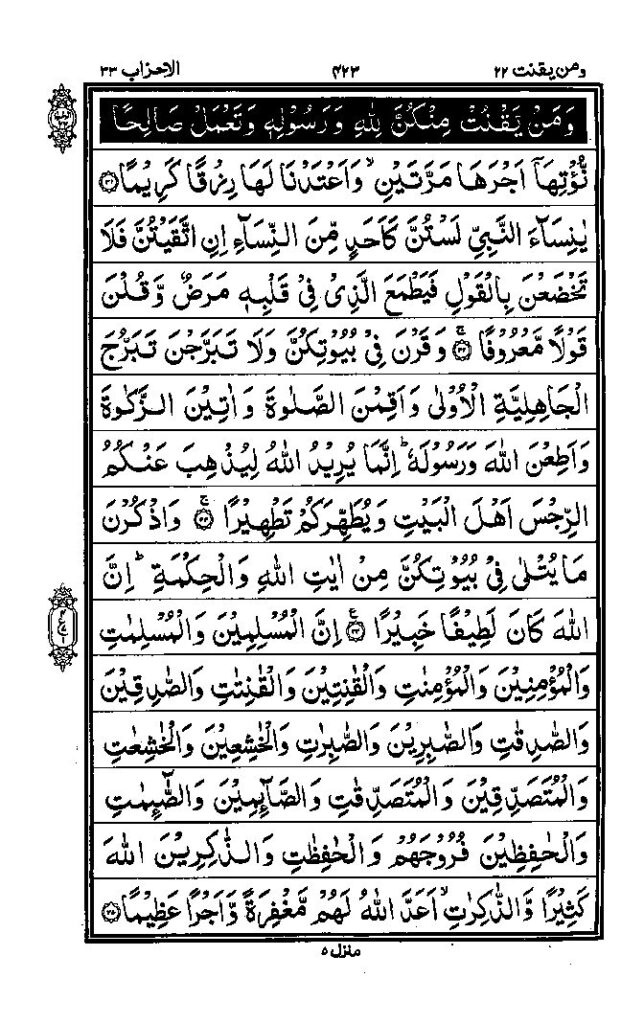 ومن يقنت ٢٢ ۴۲۳ الاحزاب ٣٣
وَمَنْ يَّقْنُتْ مِنْكُنَّ لِلّٰهِ وَرَسُوْلِهٖ وَتَعْمَلْ صَالِحًا
نُّؤْتِهَآ اَجْرَهَا مَرَّتَيْنِ ۙ وَاَعْتَدْنَا لَهَا رِزْقًا كَرِيْمًا ﴿٣١﴾
يٰنِسَآءَ النَّبِيِّ لَسْتُنَّ كَاَحَدٍ مِّنَ النِّسَآءِ اِنِ اتَّقَيْتُنَّ فَلَا
تَخْضَعْنَ بِالْقَوْلِ فَيَطْمَعَ الَّذِيْ فِيْ قَلْبِهٖ مَرَضٌ وَّقُلْنَ
قَوْلًا مَّعْرُوْفًا ﴿٣٢﴾ۚ وَقَرْنَ فِيْ بُيُوْتِكُنَّ وَلَا تَبَرَّجْنَ تَبَرُّجَ
الْجَاهِلِيَّةِ الْاُوْلٰى وَاَقِمْنَ الصَّلٰوةَ وَاٰتِيْنَ الزَّكٰوةَ
وَاَطِعْنَ اللّٰهَ وَرَسُوْلَهٗ ؕ اِنَّمَا يُرِيْدُ اللّٰهُ لِيُذْهِبَ عَنْكُمُ
الرِّجْسَ اَهْلَ الْبَيْتِ وَيُطَهِّرَكُمْ تَطْهِيْرًا ﴿٣٣﴾ۚ وَاذْكُرْنَ
مَا يُتْلٰى فِيْ بُيُوْتِكُنَّ مِنْ اٰيٰتِ اللّٰهِ وَالْحِكْمَةِ ؕ اِنَّ
اللّٰهَ كَانَ لَطِيْفًا خَبِيْرًا ﴿٣٤﴾ۧ اِنَّ الْمُسْلِمِيْنَ وَالْمُسْلِمٰتِ
وَالْمُؤْمِنِيْنَ وَالْمُؤْمِنٰتِ وَالْقٰنِتِيْنَ وَالْقٰنِتٰتِ وَالصّٰدِقِيْنَ
وَالصّٰدِقٰتِ وَالصّٰبِرِيْنَ وَالصّٰبِرٰتِ وَالْخٰشِعِيْنَ وَالْخٰشِعٰتِ
وَالْمُتَصَدِّقِيْنَ وَالْمُتَصَدِّقٰتِ وَالصَّآئِمِيْنَ وَالصّٰٓئِمٰتِ
وَالْحٰفِظِيْنَ فُرُوْجَهُمْ وَالْحٰفِظٰتِ وَالذّٰكِرِيْنَ اللّٰهَ
كَثِيْرًا وَّالذّٰكِرٰتِ ۙ اَعَدَّ اللّٰهُ لَهُمْ مَّغْفِرَةً وَّاَجْرًا عَظِيْمًا ﴿٣٥﴾
منزل ۵